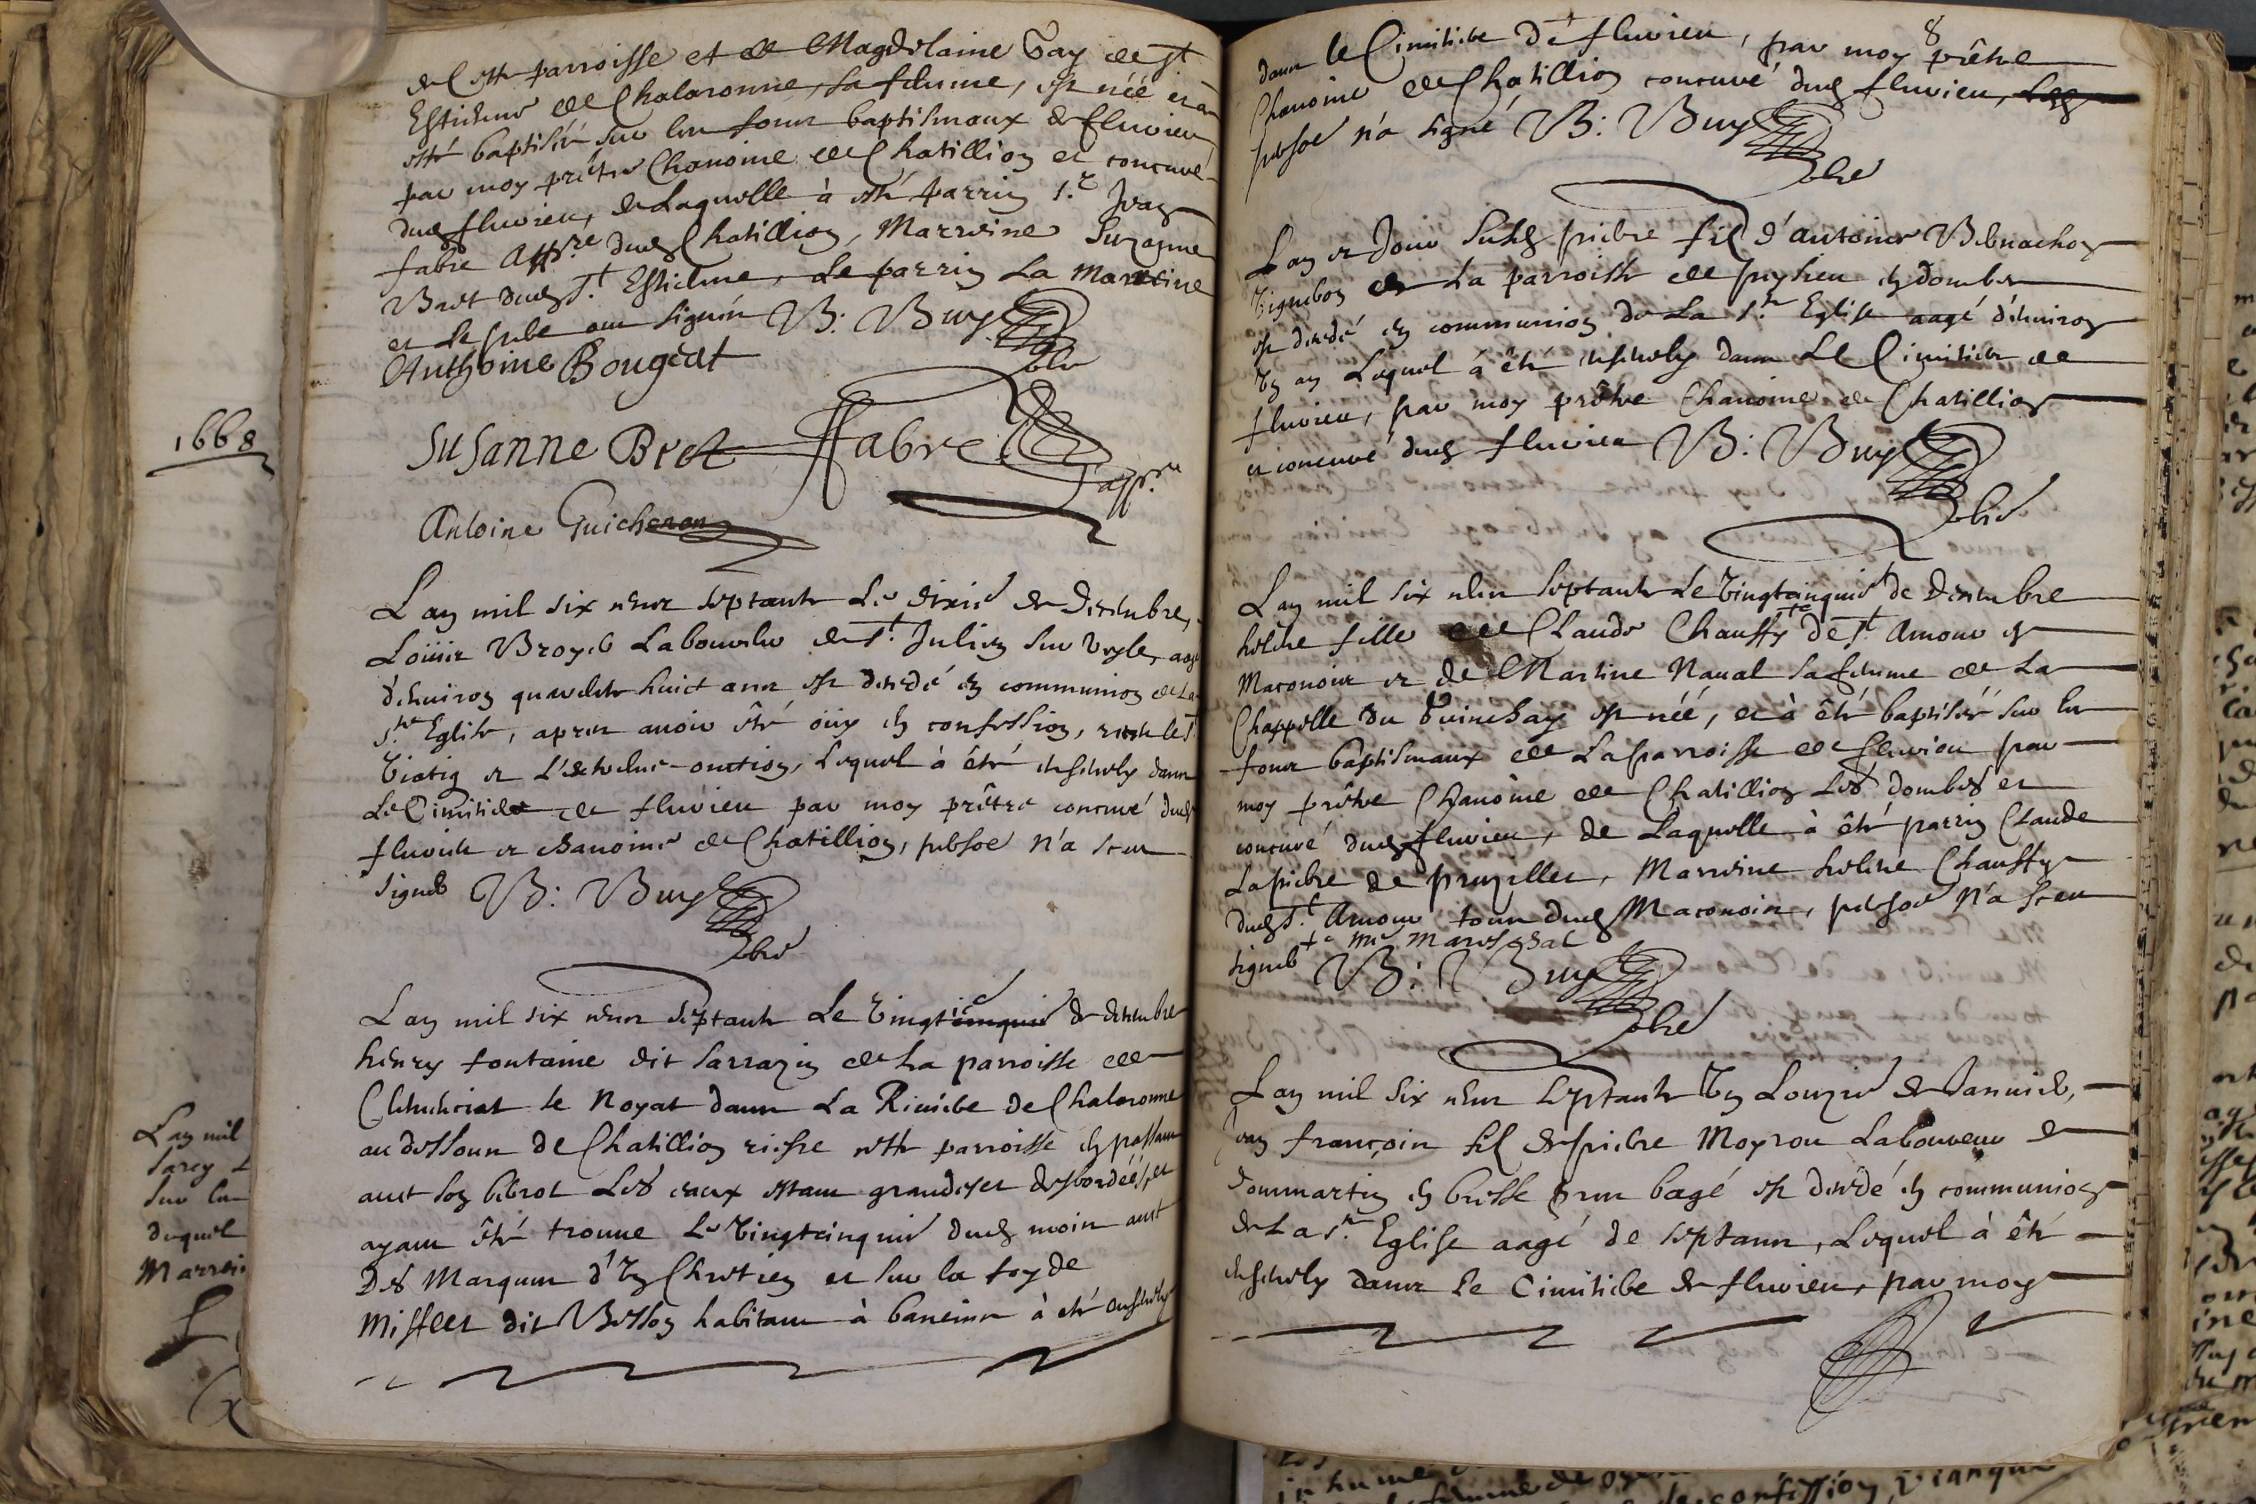 de Cette parroisse et de Magdelaine Gay de St
Estienne de Chalaronne, sa femme, est néé et a
esté baptiséé sur les fonts baptismaux de fluvieu
par moy prêtre Chanoine de Chatillion et concuré
dud fluvieu, de Laquelle à esté parrin sr. Jean
fabre appre dud Chatillion, Marreine Suzanne
Bret dud St. Estienne, Le parrin La Marreine
et Le pere ont signéz B: Buyz
Anthoine Bougeat
pbre
1668
SuSanne Bret Ffabre
app.re
Antoine Guichenon
L'an mil six cens septante Le dixie de Decembre,
Loüis Broyer Laboureur de St. Julien sur Veyle, aagé
d'enuiron quarente huict ans est decedé en communion de La
ste Eglise, apres auoir été oüy en confession, receu le st
Viatiq et L'extreme-onction, Lequel à été enseuely dans
Le Cimitiere de fluvieu par moy prêtre concuré dud
fluvieu et chanoine de Chatillion, present n'a sceu
signer B: Buyz
pbre
L'an mil six cens septante Le Vingtcinquie de decembre
henry fontaine dit sarrazin de La parroisse de
Chaneins se Noyat dans La Riuiere de Chalaronne
au dessoun de Chatillion riere cette parroisse en passant
auec son Les eaux estant grandes et desbordéés, et
ayant été trouué Le Vingtcinquie dud mois auec
Des Marques d'Un Chretien et sur la foy de
Misseer dit Besson habitant à baneins à eté enseuely
L'an mil
sarcy L
sur les
duquel
Marrei
8
dans le Cimitiere De fluvieu, par moy prêtre
Chanoine de Chatillion concuré dud fluvieu,
present n'a signé B: Buyz
pbre
L'an et Jour susd pierre fils d'antoine
Vigneron de La parroisse de en dombes
est decedé en communion de La ste Eglise aagé d'enuiron
Un an Lequel à été enseuely dans Le Cimitiere de
fluvieu, par moy prêtre Chanoine de Chatillion
et concuré dud fluvieu B: Buyz
pbre
L'an mil six cens septante Le Vingtcinquie de Decembre
helene fille de Claude Chauffy +e De St. Amour en
Maconois et de Martine Naual sa femme de La
Chappelle du Guinchay est néé, et à été baptiséé sur les
fonts baptismaux de La parroisse de fluvieu par
moy prêtre Chanoine de Chatillion Les dombes et
concuré dud fluvieu, de Laquelle à été parrin Claude
Lapierre de pruzilles, Marreine helene Chauffy
dud St. Amour tous dud Maconois, present N'a sceu
signer +e Me Mareschal
B: Buyz
pbre
L'an mil six cens septante Un Le onzie de Januier,
Jean françois fils de pierre Moyrou Laboureur de
dommartin en bresse pres bagé est decedé en communion
de La ste. Eglise aagé de sept ans, Lequel à été
enseuely dans Le Cimitiere de fluvieu, par moy